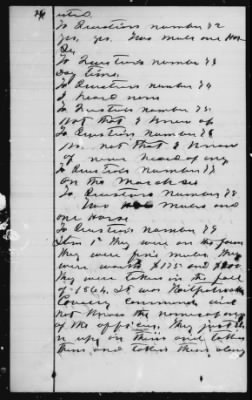 To Questions number 22
Yes, yes. Two mules one Horse
To Questions number 23
Day time.
To Questions number 24
I heard none
To Questions number 25
Not that I know of
To Questions number 26
No. not that I know
of never heard of any
To Questions number 27
on the March
To Questions Number 28
Two mules and
one Horse
To Questions number 29
Item 1st They were on the farm
they were fine mules. they
were worth $175 and
they were taken in the fall
of 1864. It was Kilpatricks
Cavalry command did
not know the names of any
of the officers. They just
up on them and taken
them and taken them along